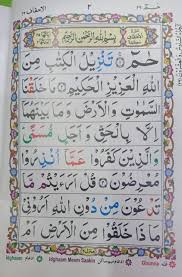 حٰمٓ ۲ الاحقاف ٤٦
بِسْمِ اللّٰهِ الرَّحْمٰنِ الرَّحِيْمِ
حٰمٓ تَنْزِيْلُ الْكِتٰبِ مِنَ
اللّٰهِ الْعَزِيْزِ الْحَكِيْمِ مَا خَلَقْنَا
السَّمٰوٰتِ وَالْاَرْضَ وَمَا بَيْنَهُمَآ
اِلَّا بِالْحَقِّ وَاَجَلٍ مُّسَمًّى
وَالَّذِيْنَ كَفَرُوْا عَمَّآ اُنْذِرُوْا
مُعْرِضُوْنَ قُلْ اَرَءَيْتُمْ مَّا
تَدْعُوْنَ مِنْ دُوْنِ اللّٰهِ اَرُوْنِيْ
مَاذَا خَلَقُوْا مِنَ الْاَرْضِ اَمْ
Idghaam Idghaam Meem Saakin Ghunna